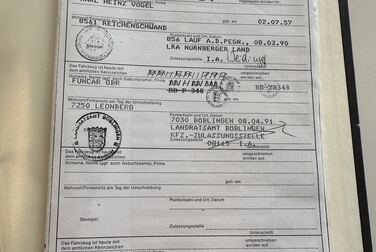 KARL HEINZ VOGEL
Firma
Wohnort/Firmensitz am Tag der Umschreibung
geb. am
8561 REICHENSCHWAND
02.07.57
Postleitzahl und Ort, Datum
856 LAUF A.D.PEGN., 08.03.90
LRA NÜRNBERGER LAND
Stempel
Zulassungsstelle
I.A.
Unterschrift
Das Fahrzeug ist heute mit
dem amtlichen Kennzeichen
umgeschrieben
worden auf
Vorname, Name (ggf. auch Geburtsname), Firma
FUNCAR GBR
BB-P 348
BB-ZB348
Wohnort/Firmensitz am Tag der Umschreibung
geb. am
7250 LEONBERG
Postleitzahl und Ort, Datum
7030 BÖBLINGEN 08.04.91
LANDRATSAMT BÖBLINGEN
KFZ.-ZULASSUNGSSTELLE
08115 I.A.
LANDRATSAMT BÖBLINGEN
Das Fahrzeug ist heute mit
dem amtlichen Kennzeichen
umgeschrieben
worden auf
Vorname, Name (ggf. auch Geburtsname), Firma
Wohnort/Firmensitz am Tag der Umschreibung
geb. am
Postleitzahl und Ort, Datum
Stempel
Zulassungsstelle
Unterschrift
Das Fahrzeug ist heute mit
dem amtlichen Kennzeichen
umgeschrieben
worden auf